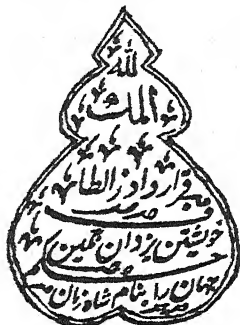 لله
الملک
قرار داد ز الطاف
خویشتن یزدان نگین
حکم
جهان را بنام شاه زمان